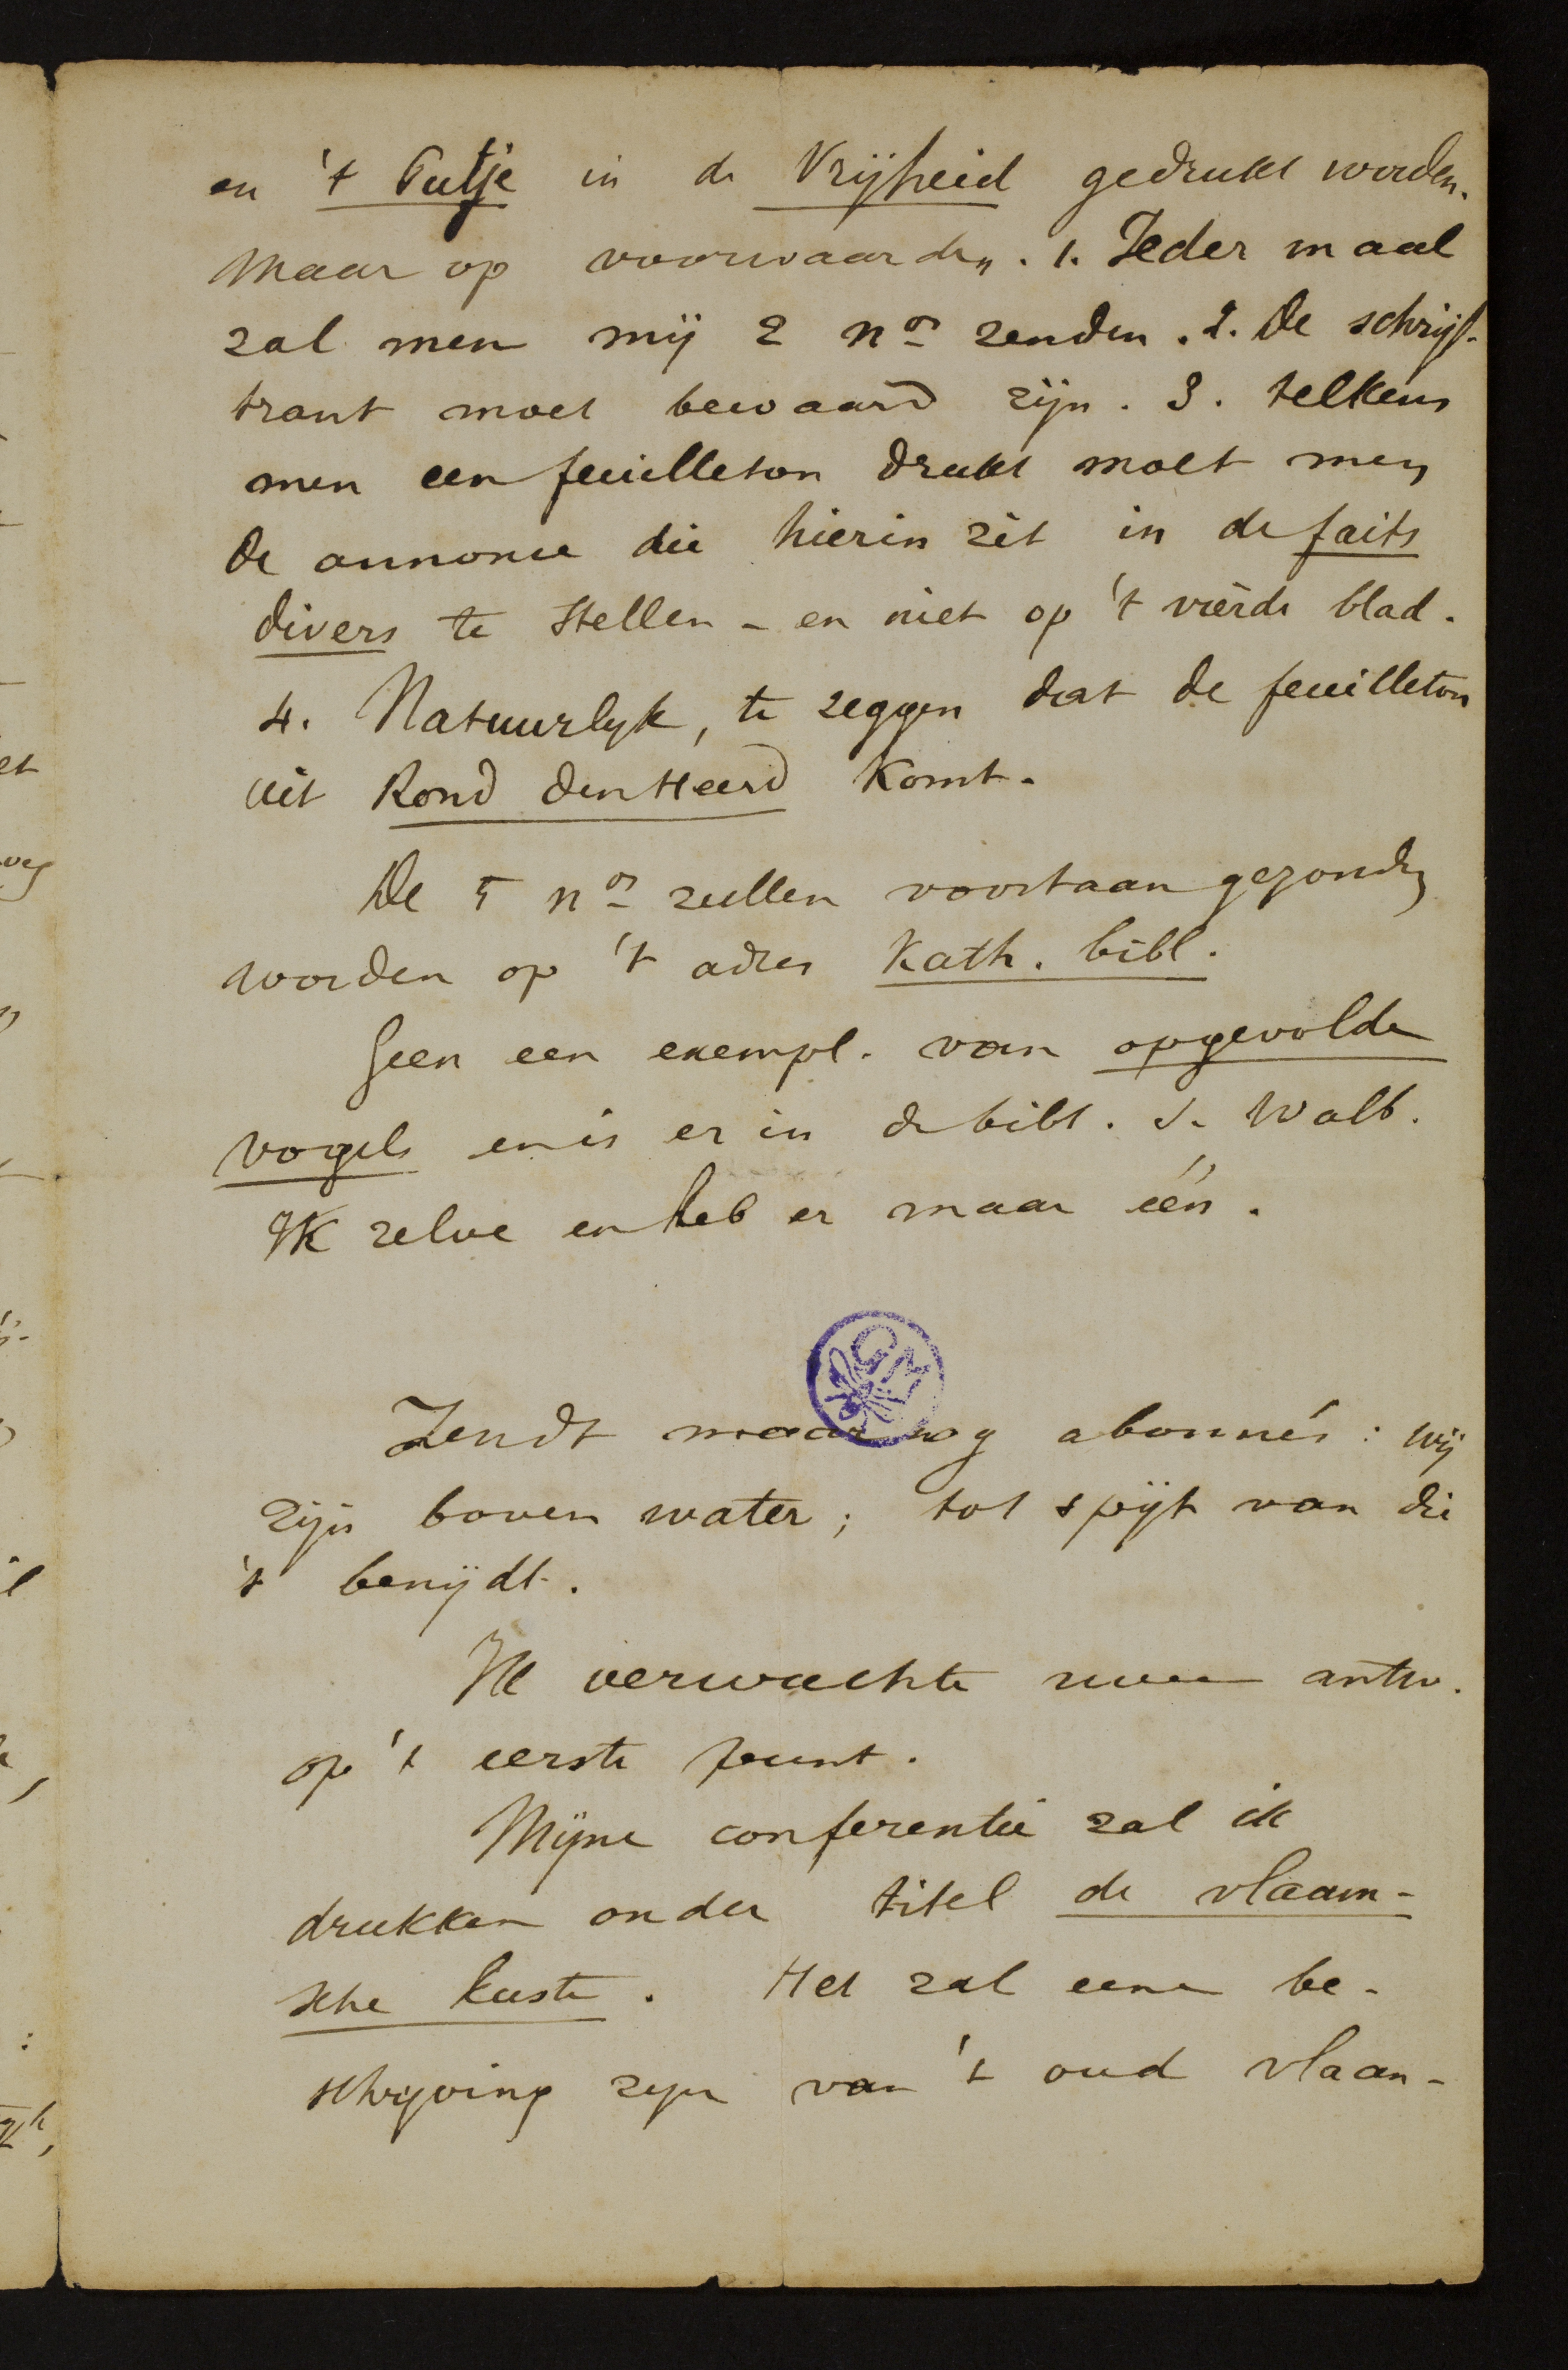 en 't Putje in de Vrijheid gedrukt worden.
Maar op voorwaarden. 1. Ieder maal
zal men mij 2 nos zenden. 2. De schrijf-
trant moet bewaard zijn. 3. telkens
men een feuilleton drukt moet men
de annonce die hierin zit in de faits
divers te stellen - en niet op 't vierde blad.
4. Natuurlyk, te zeggen dat de feuilleton
uit Rond den Heerd komt.
De 5 nos zullen voortaan gezonden
worden op 't adres Kath. bibl.
Geen een exempl. van opgevolde
vogels en is er in de bibl. S. Walb.
Ik zelve en heb er maar één.
GM
Zendt maar nog abonnés: wij
zijn boven water; tot spijt van die
't benijdt.
Ik verwachte uwe antw.
op 't eerste punt.
Mijne conferentie zal ik
drukken onder titel de vlaam-
sche kuste. Het zal eene be-
schryving zyn van 't oud vlaan-